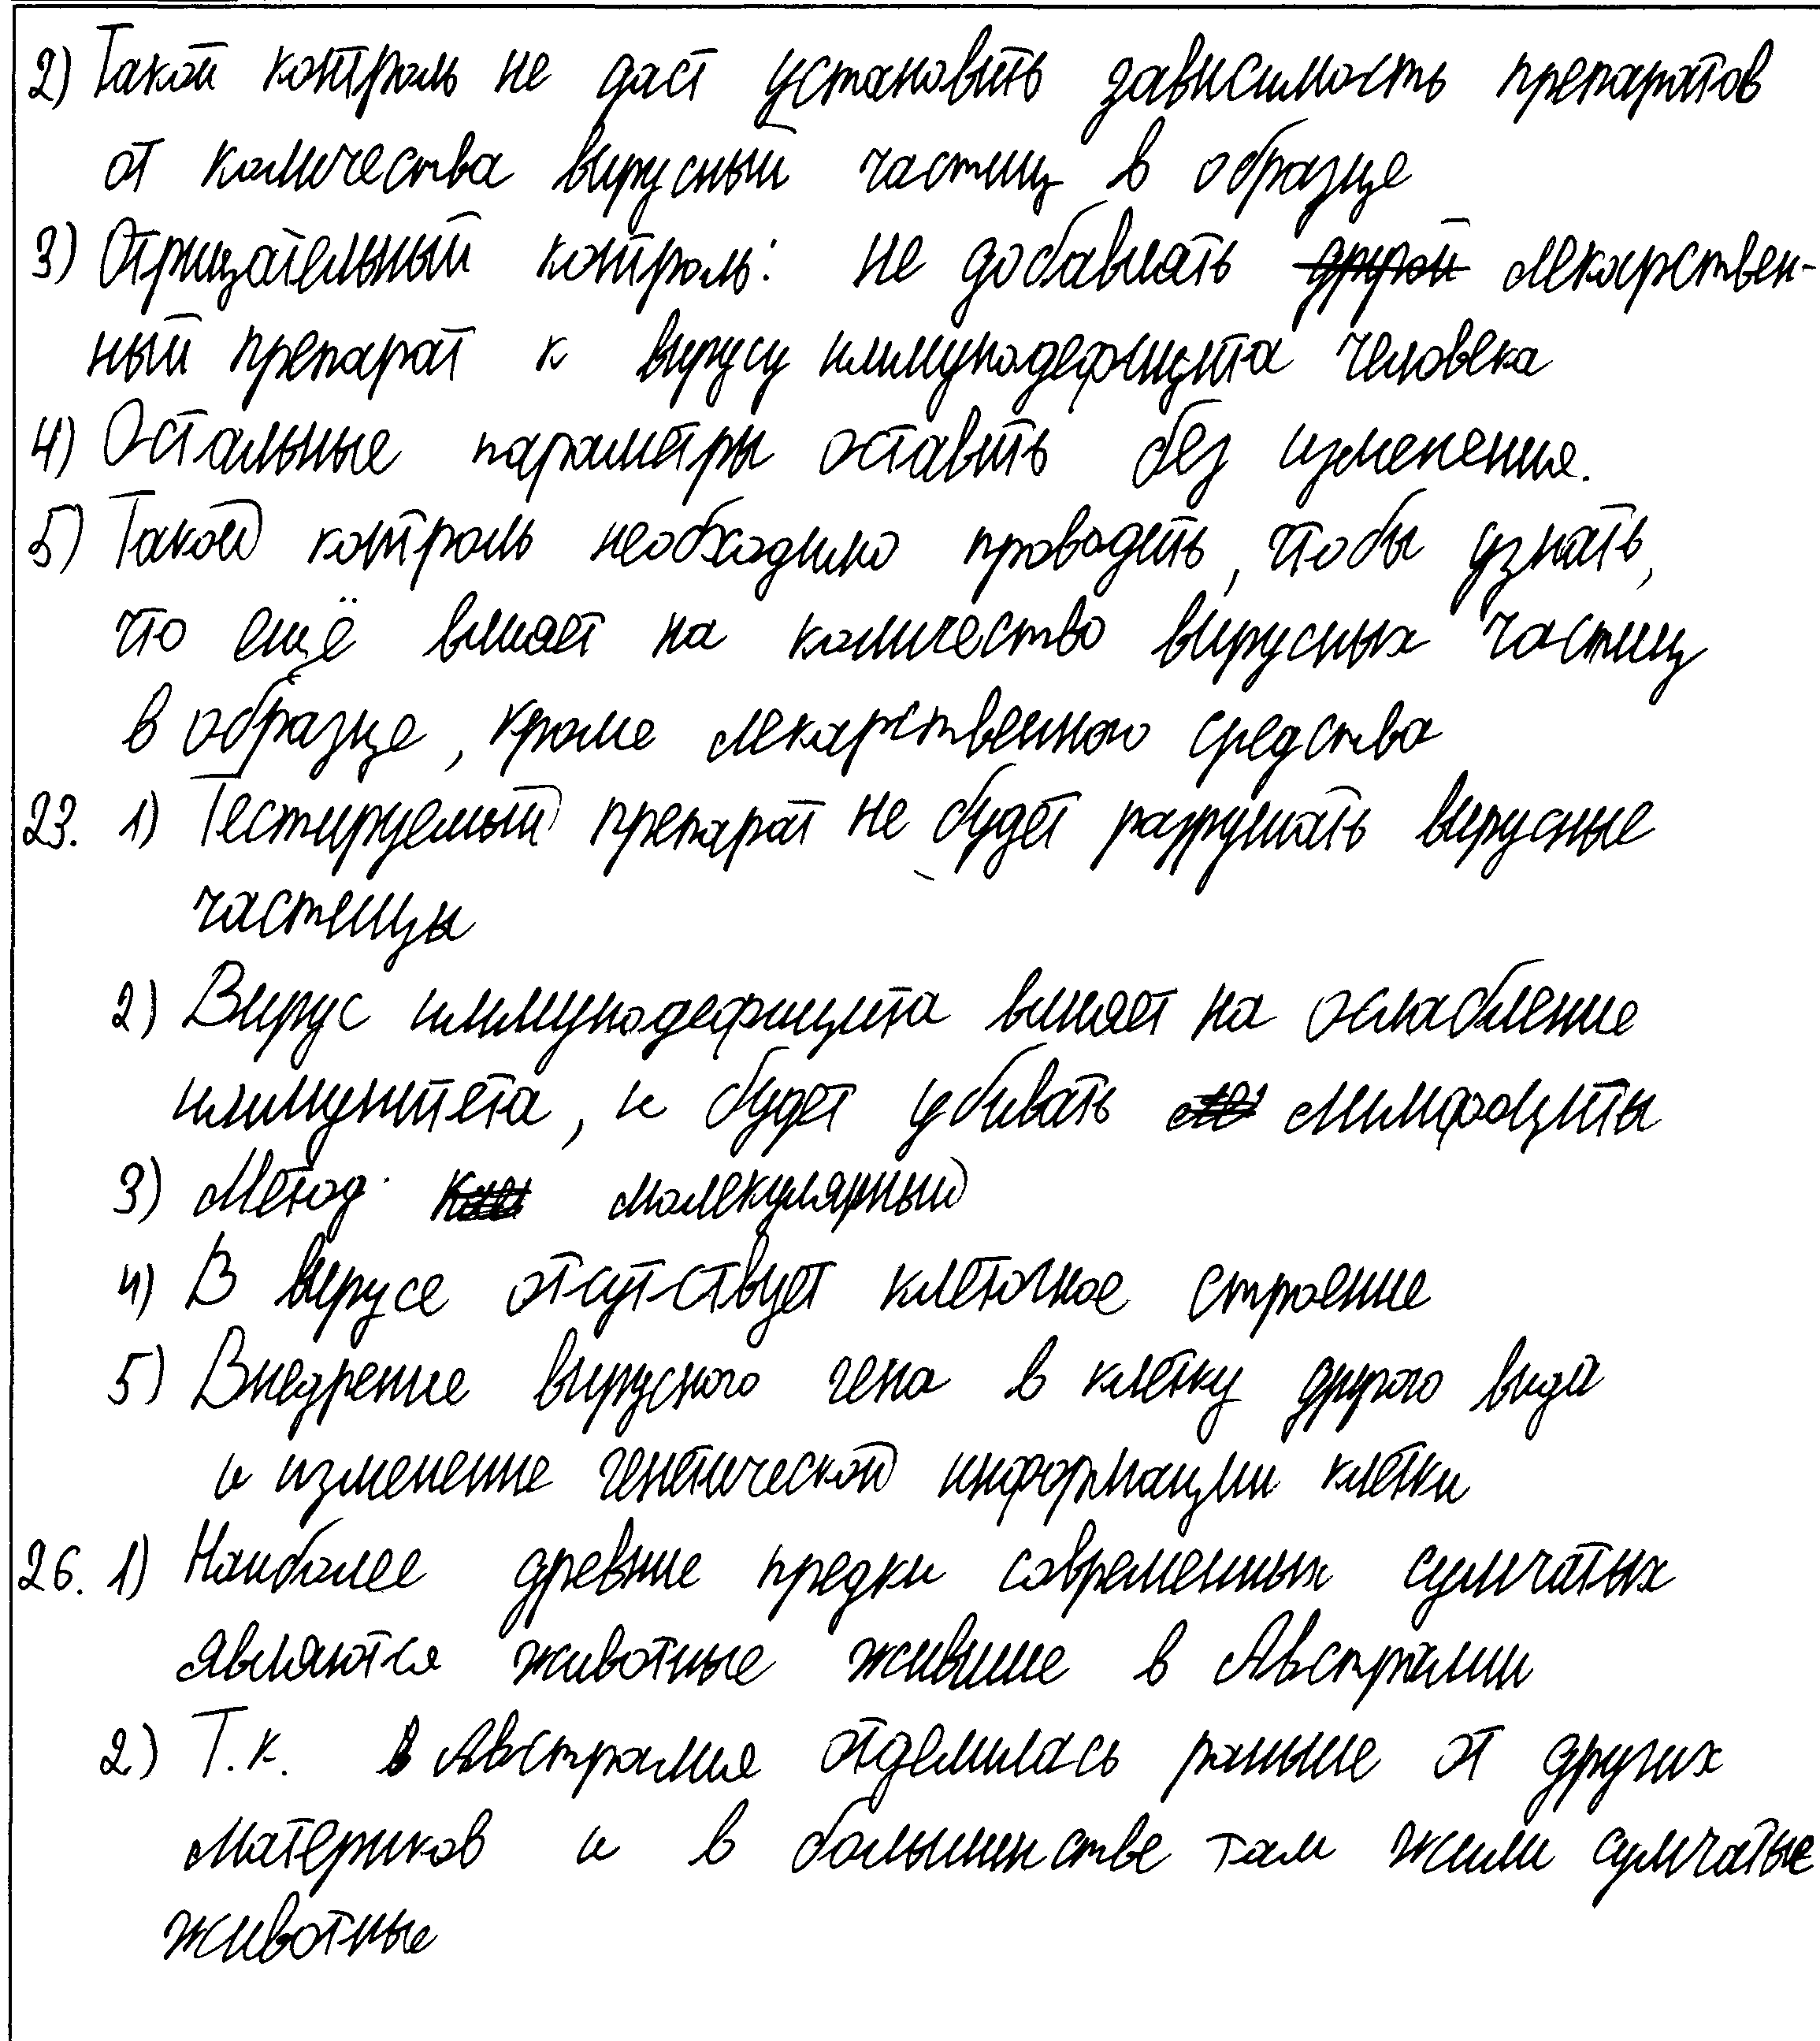 2) Такой контроль не даст установить зависимость препаратов
от количества вирусный частиц в образце
3) Отрицательный контроль: не добавлять другой лекарствен-
ный препарат к вирусу иммунодефицита человека
4) Остальные параметры оставить без изменения.
5) Такой контроль необходимо проводеть, чтобы узнать,
что ещё влияет на количество вирусных частиц
в образце, кроме лекарственного средства
23. 1) Тестируемый препарат не будет разрушать вирусные
частицы
2) Вирус иммунодефицита влияет на ослабление
иммунитета, и будет убивать лимфоциты
3) Метод: молекулярный
4) В вирусе отсутствует клеточное строение
5) Внедрение вирусного гена в клетку другого вида
и изменение генетической информации клетки
26. 1) Наиболее древние предки современных сумчатых
являются животные жившие в Австралии
2) Т.к. в Австралия отделилась раньше от других
материков и в большинстве там жили сумчатые
животные